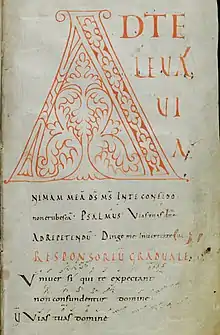 AD TE
LEUA
UI
A
NIMAM MEA DS MS IN TE CONFIDO
non erubesca PSALMUS Vias tuas
AD REPETENDU Dirige me in veritate
RESPONSORIU GRADUALE
Universi qui te expectant
non confundentur domine
Vias tuas domine